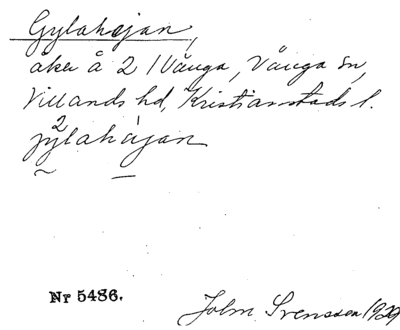 Gylahejan,
åker å 2 / Vånga, Vånga sn,
Villands hd, Kristianstads l.
jy2lahájan
Nr 5486.
John Svensson 1929